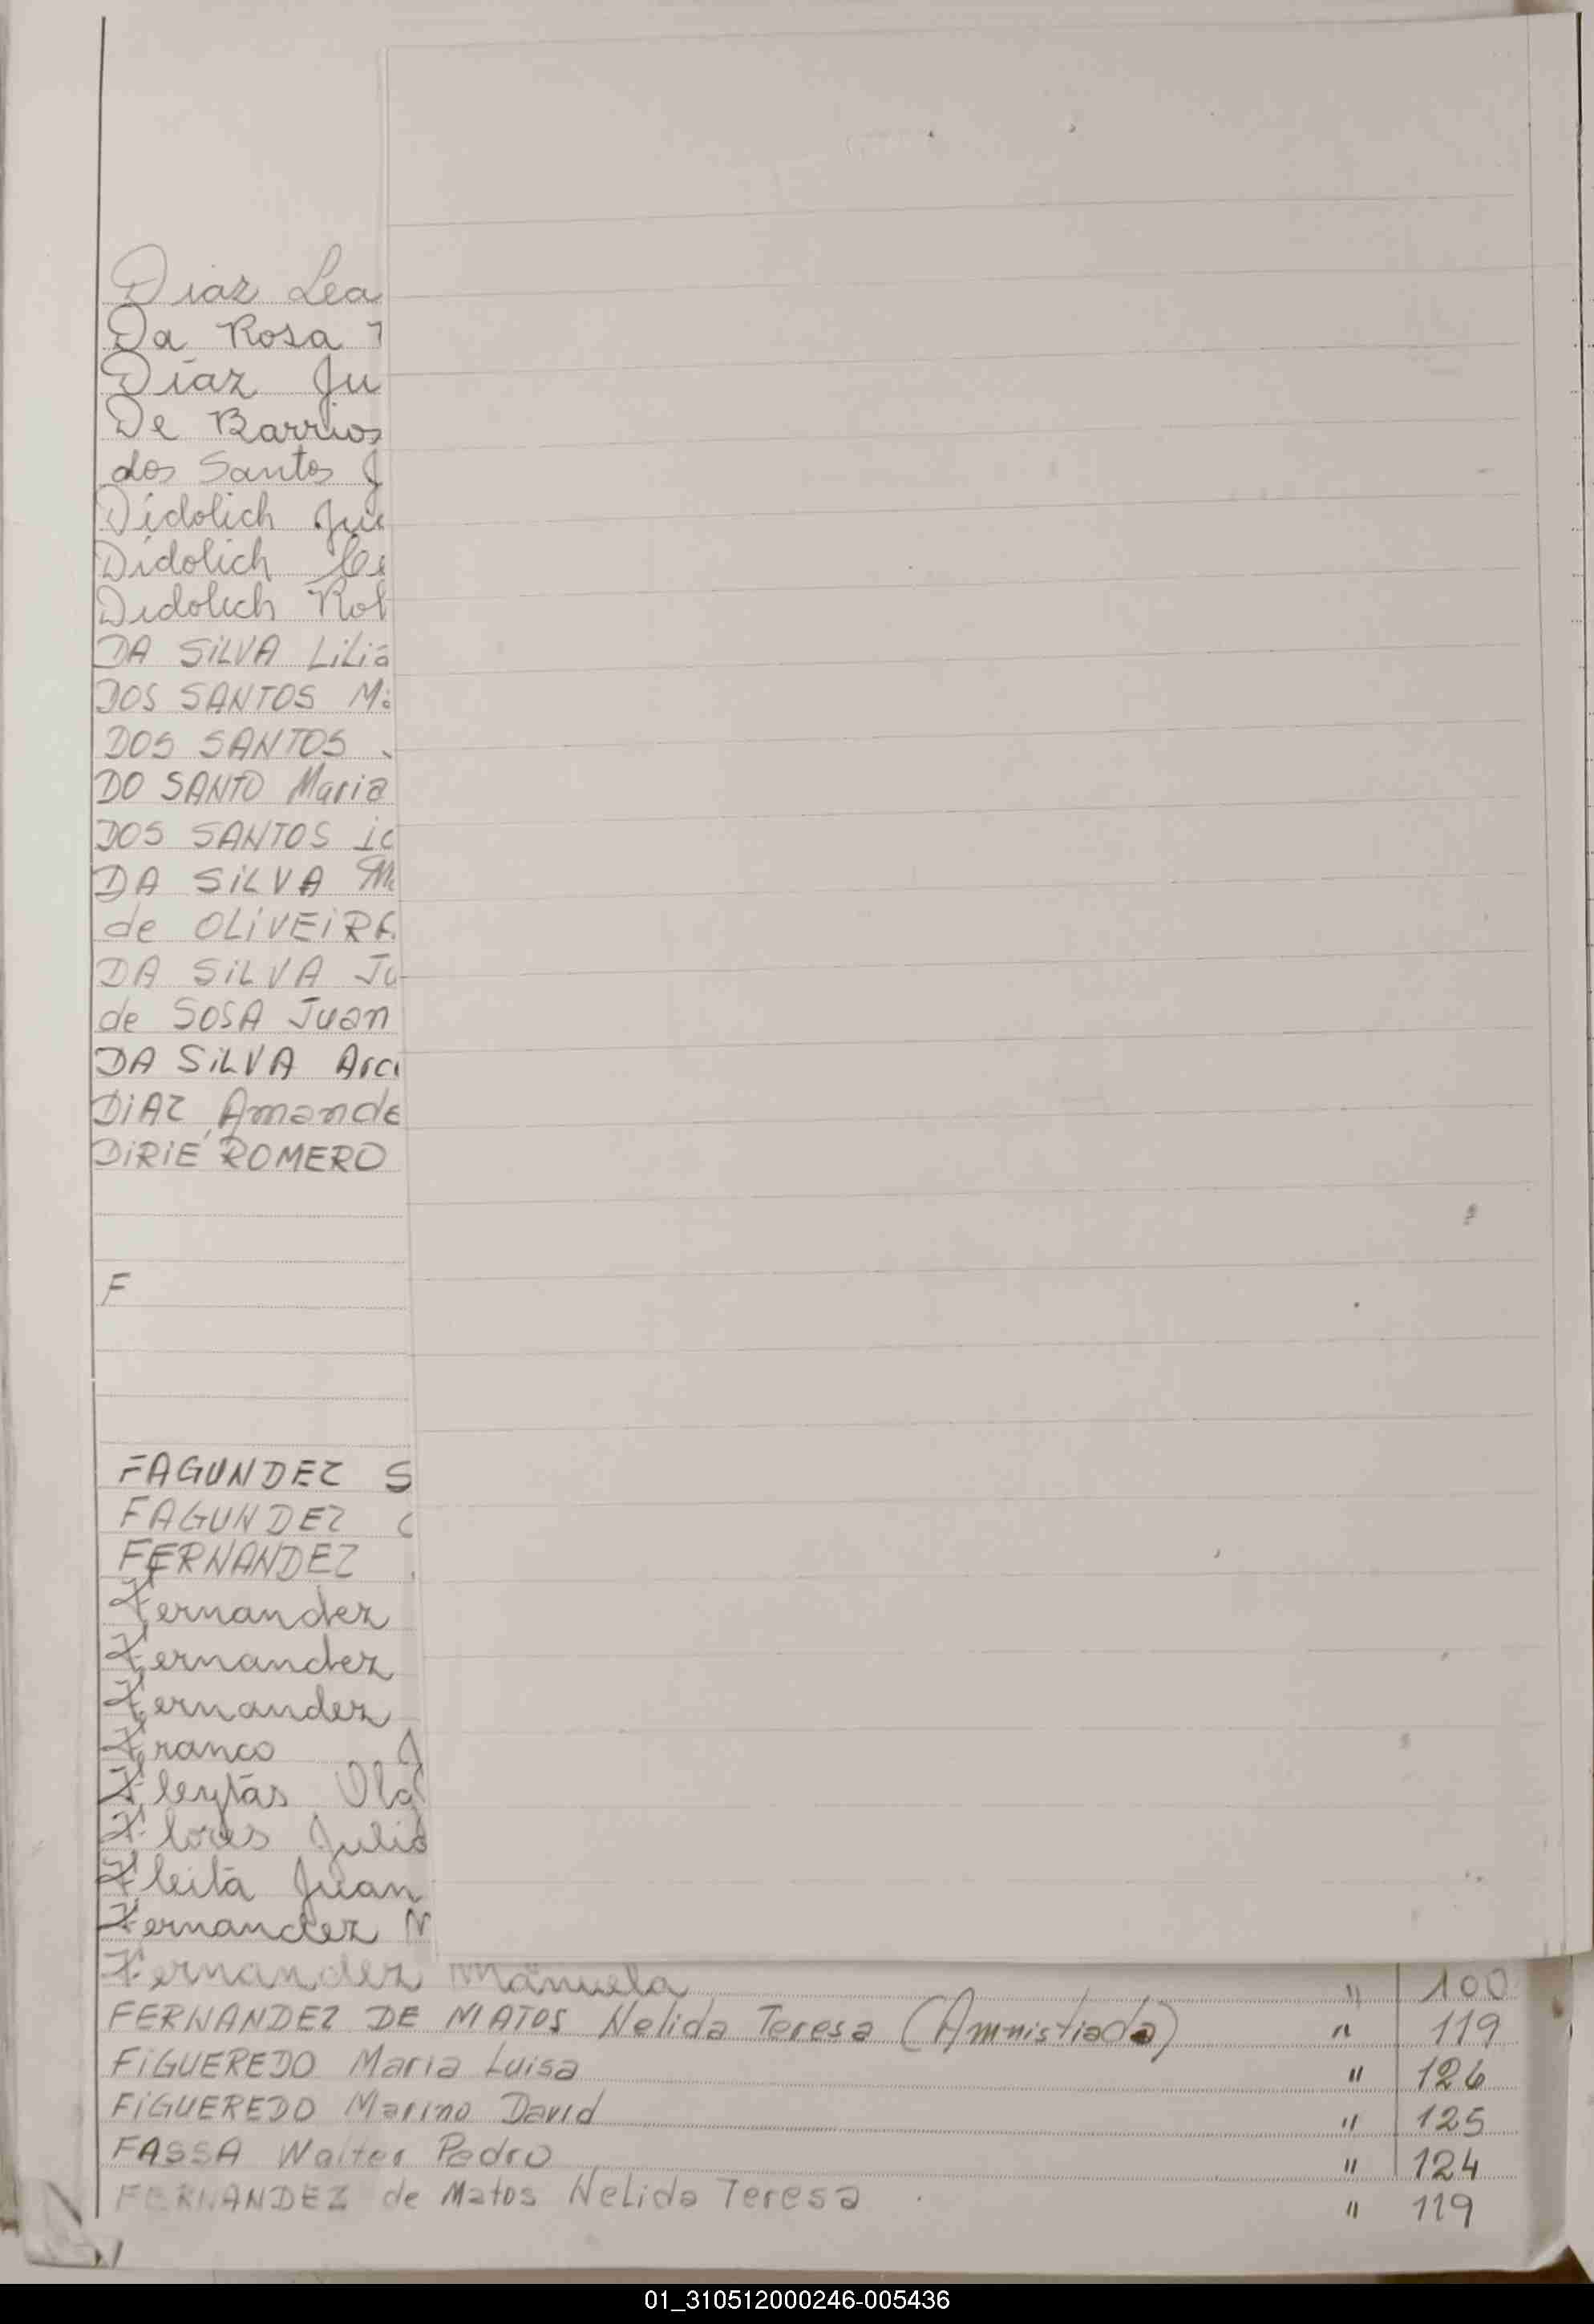 Diaz Lea
Da Rosa
Díaz Ju
De Barrios
dos Santos J
Didolich Jua
Didolich Ce
Didolich Rob
DA SiLVA LiLia
DOS SANTOS Ma
DOS SANTOS
DO SANTO Maria
DOS SANTOS
DA SiLVA M
de OLiVEiRA
DA SiLVA Ju
de SOSA Juan
DA SiLVA Arc
DiAZ Amande
DiRiÉ ROMERO
F
FAGUNDEZ S
FAGUNDEZ
FERNANDEZ
Fernandez
Fernandez
Fernandez
Franco J
Fleytas Ola
Flores Julio
Fleita Juan
Fernandez N
Fernandez Manuela " 100
FERNANDEZ DE MATOS Nelida Teresa (Amnistiada) " 119
FiGUEREDO Maria Luisa " 126
FiGUEREDO Marino David " 125
FASSA Walter Pedro " 124
FERNANDEZ de Matos Nelida Teresa " 119
01_310512000246-005436